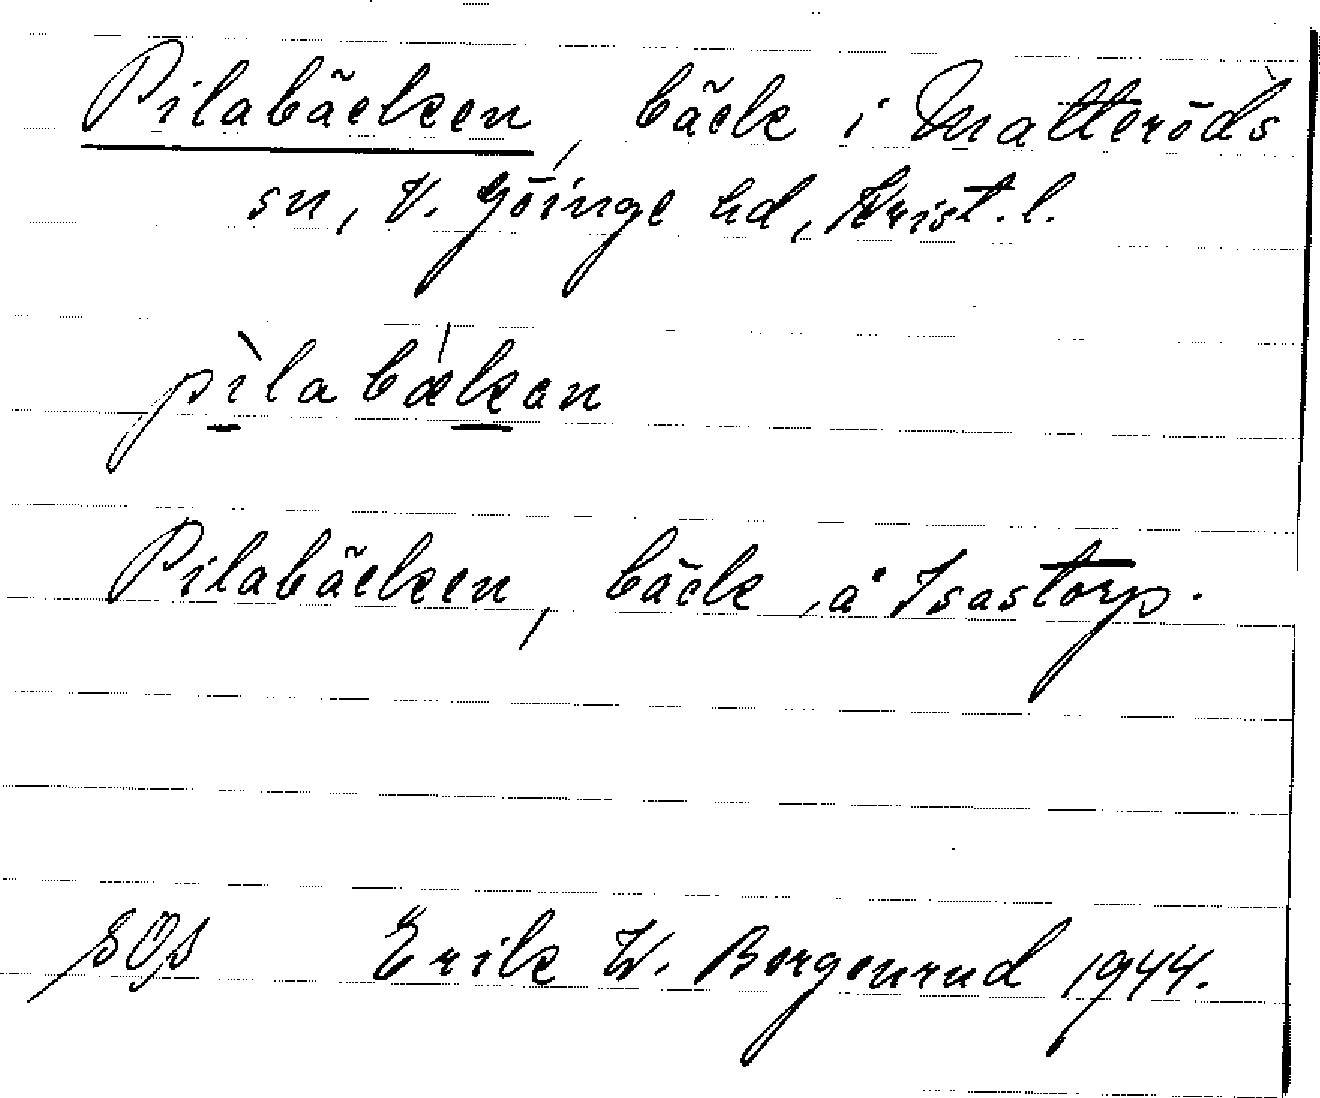 Pilabäcken, bäck i Matteröds
sn, V. Göinge hd, Krist. l.
pìlabækan
Pilabäcken, bäck å Isastorp.
SOS Erik W. Bergenrud 1944.